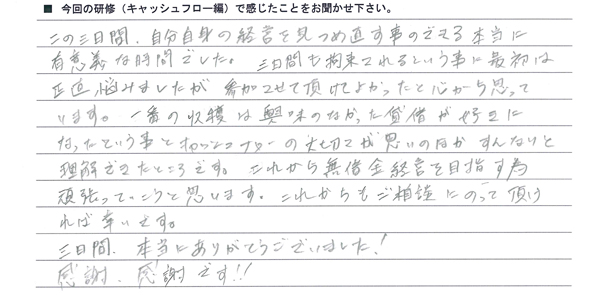 ■ 今回の研修（キャッシュフロー編）で感じたことをお聞かせ下さい。
この三日間、自分自身の経営を見つめ直す事のできる本当に
有意義な時間でした。三日間も拘束されるという事に最初は
正直悩みましたが参加させて頂けてよかったと心から思って
います。一番の収穫は興味のなかった貸借が好きに
なったという事とキャッシュフローの大切さが思いのほかすんなりと
理解できたところです。これから無借金経営を目指す為
頑張っていこうと思います。これからもご相談にのって頂け
れば幸いです。
三日間、本当にありがとうございました！
感謝、感謝です!!